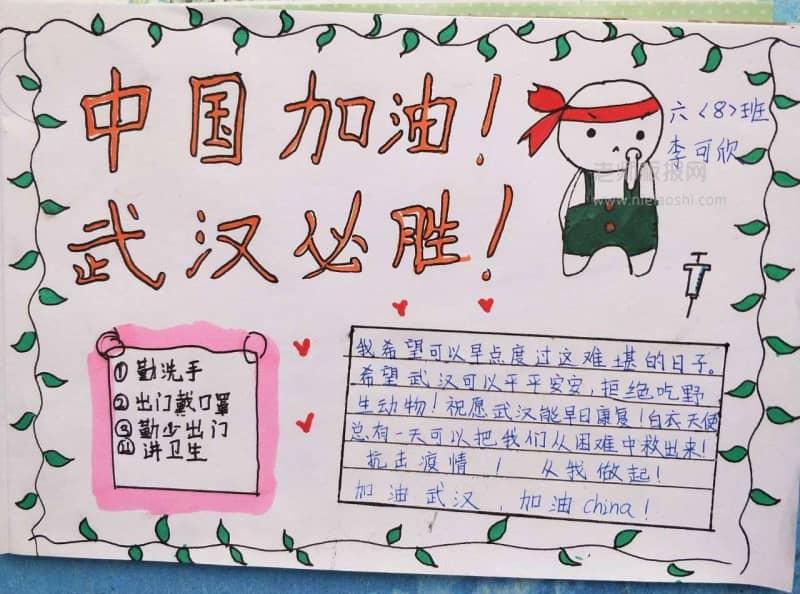 中国加油！
武汉必胜！
六〈8〉班
李可欣
老师板报网
www.nielaoshi.com
① 勤洗手
② 出门戴口罩
③ 勤少出门
讲卫生
我希望可以早点度过这难堪的日子。
希望武汉可以平平安安，拒绝吃野
生动物！祝愿武汉能早日康复！白衣天使
总有一天可以把我们从困难中救出来！
抗击疫情！从我做起！
加油武汉，加油china！